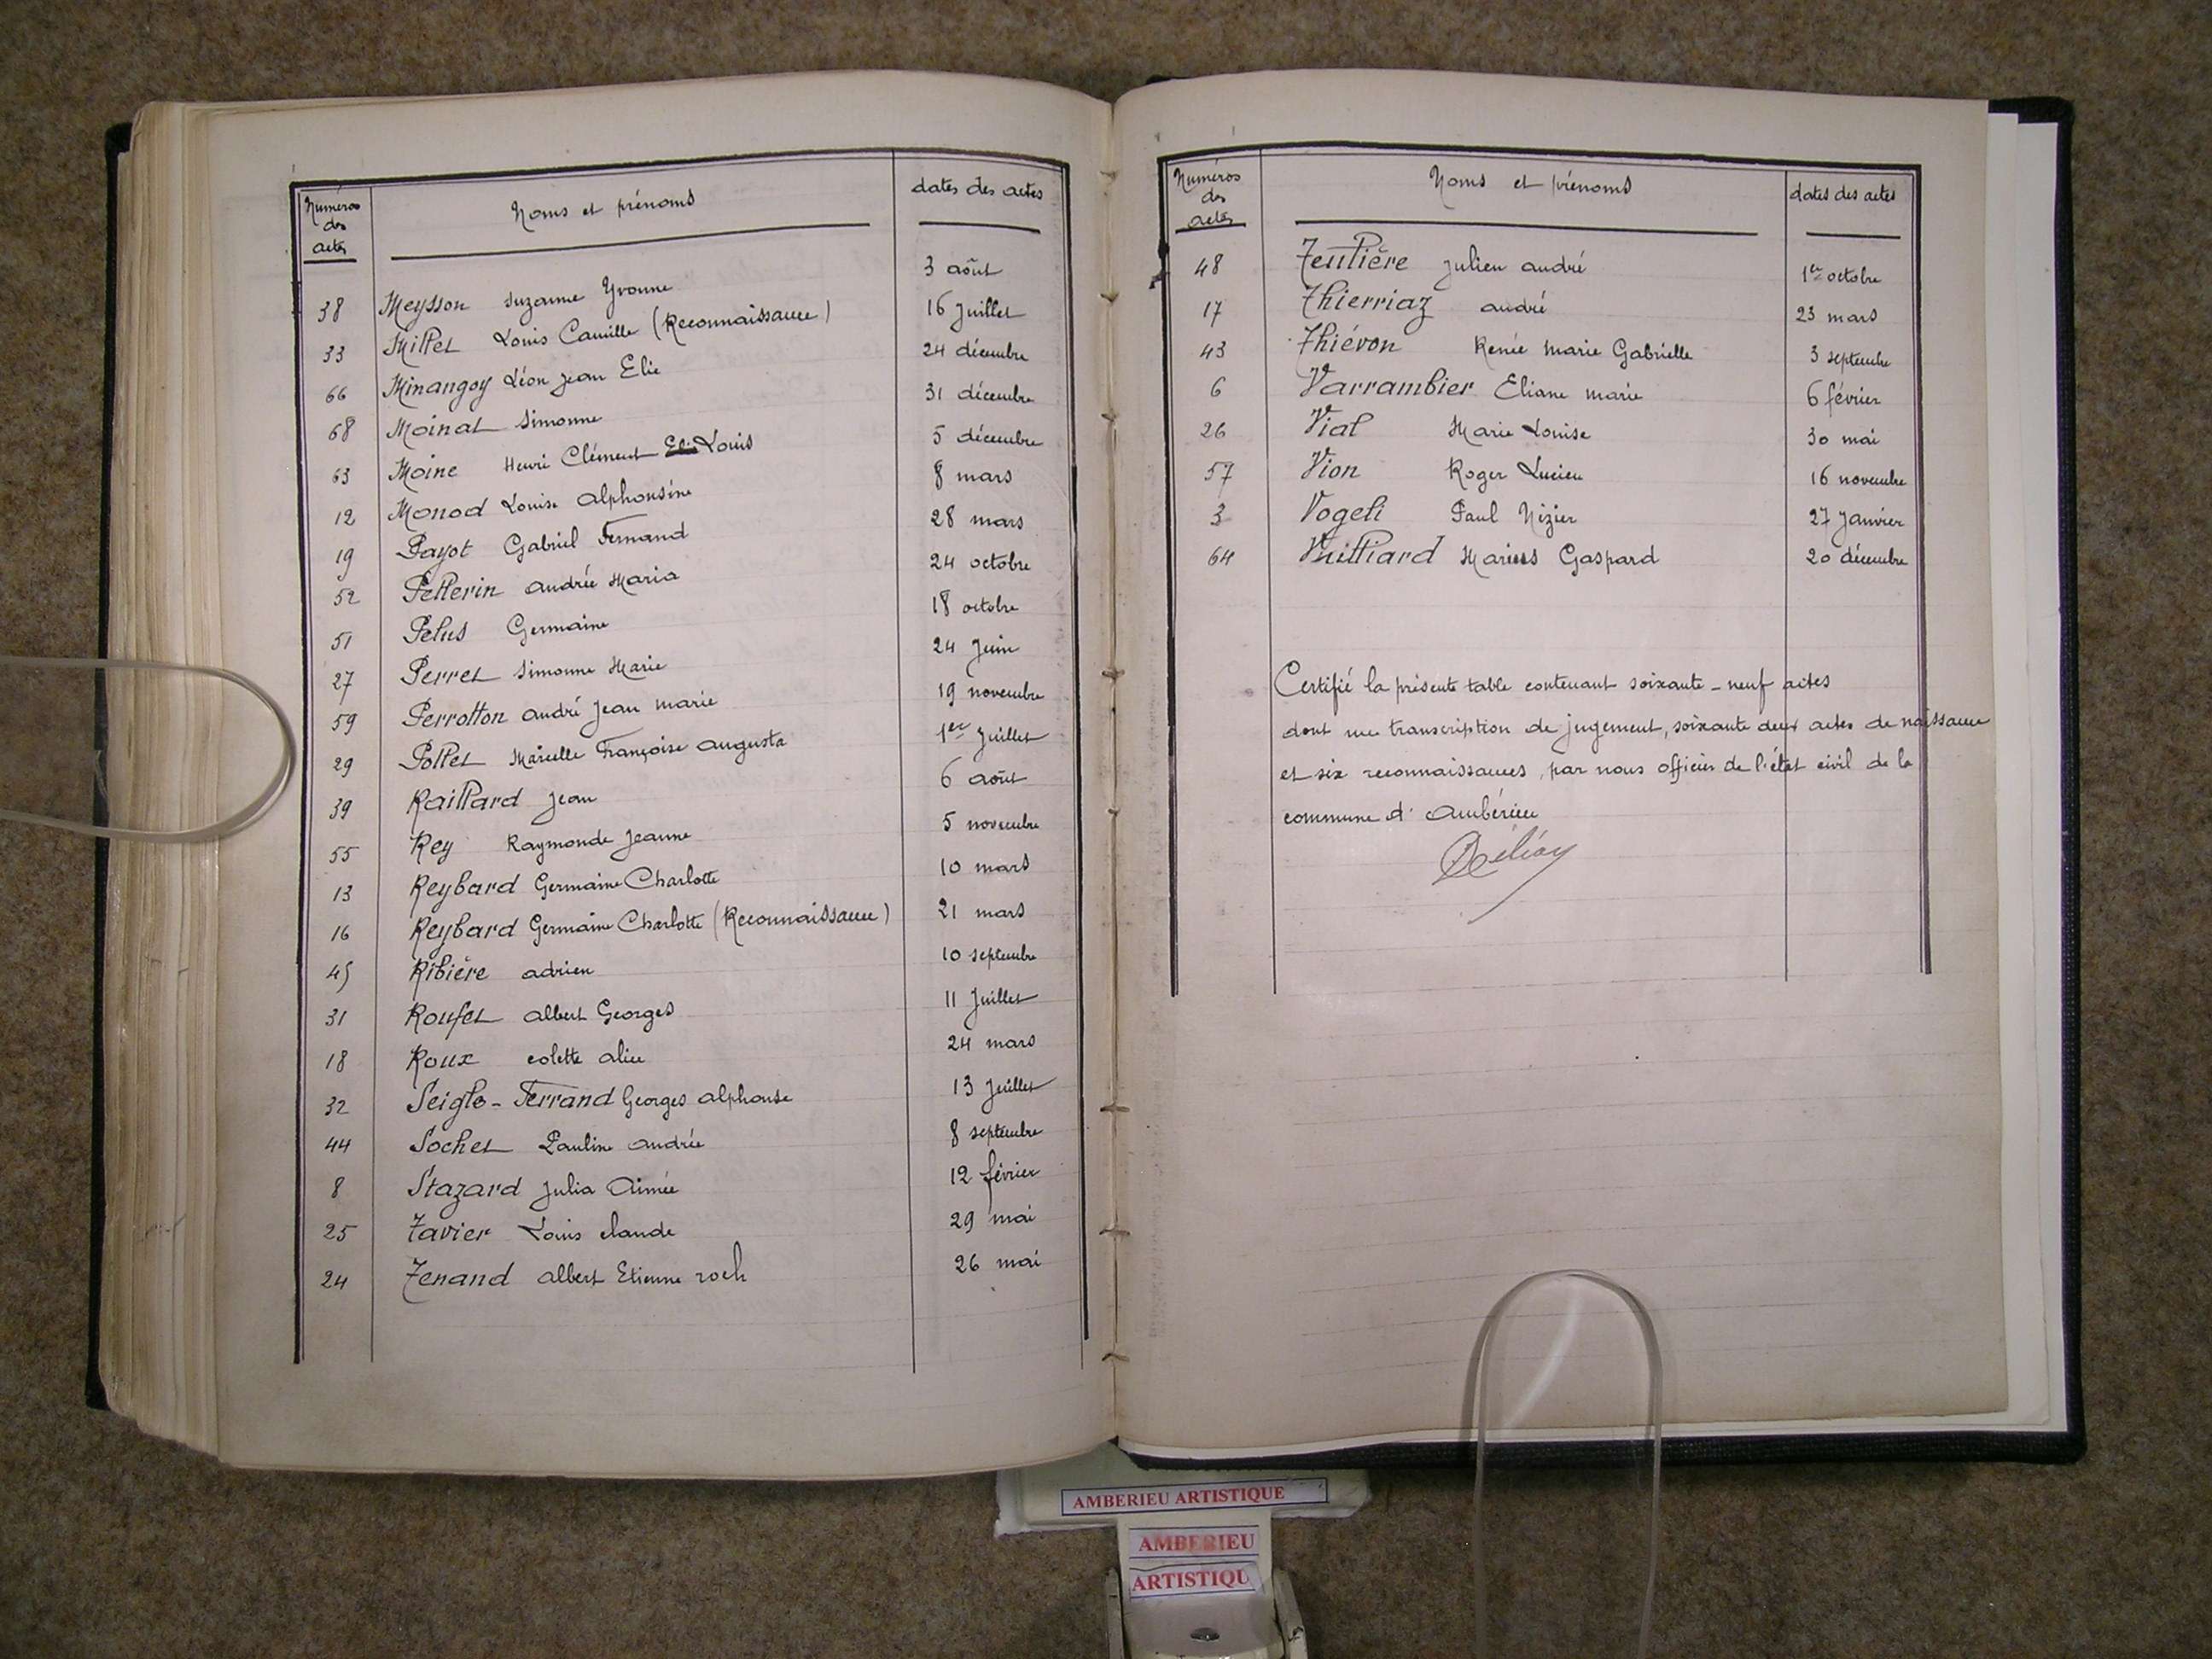 Numéros des actes Noms et prénoms dates des actes
38 Meysson Suzanne Yvonne 3 août
33 Millet Louis Camille (Reconnaissance) 16 Juillet
66 Minangoy Léon Jean Elie 24 décembre
68 Moinat Simonne 31 décembre
63 Moine Henri Clément Louis 5 décembre
12 Monod Louise Alphonsine 8 mars
19 Payot Gabriel Fernand 28 mars
52 Pellerin andrée Maria 24 octobre
51 Pelus Germaine 18 octobre
27 Perret Simonne Marie 24 Juin
59 Perrotton andré Jean marie 19 novembre
29 Pollet Marcelle Françoise augusta 1er Juillet
39 Raillard Jean 6 août
55 Rey Raymonde Jeanne 5 novembre
13 Reybard Germaine Charlotte 10 mars
16 Reybard Germaine Charlotte (Reconnaissance) 21 mars
45 Ribière adrien 10 septembre
31 Roufet albert Georges 11 Juillet
18 Roux colette alice 24 mars
32 Seigle-Ferrand Georges alphonse 13 Juillet
44 Sochet Pauline andrée 8 septembre
8 Stazard Julia Aimée 12 février
25 Tavier Louis claude 29 mai
24 Tenand albert Etienne roch 26 mai
Numéros des actes Noms et prénoms dates des actes
48 Teulière Julien andré 1er octobre
17 Thierriaz andré 23 mars
43 Thiévon Renée Marie Gabrielle 3 septembre
6 Varrambier Eliane marie 6 février
26 Vial Marie Louise 30 mai
57 Vion Roger Lucien 16 novembre
3 Vogeli Paul Nizier 27 Janvier
64 Vuilliard Marius Gaspard 20 décembre
Certifié la présente table contenant soixante-neuf actes
dont une transcription de jugement, soixante deux actes de naissance
et six reconnaissances, par nous officier de l'état civil de la
commune d'Ambérieu
AMBERIEU ARTISTIQUE
AMBERIEU
ARTISTIQU